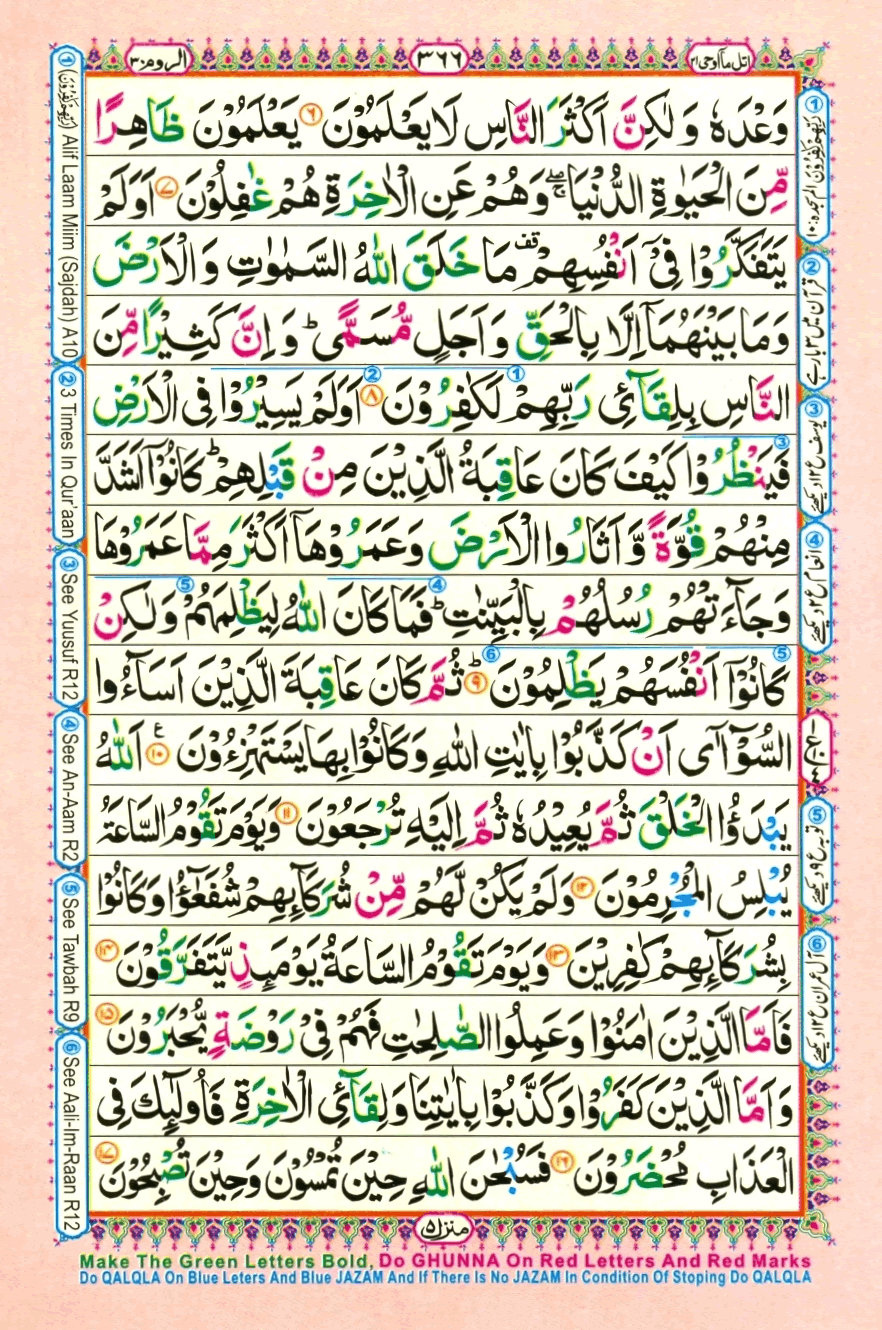 الروم ٣٠
٣٦٦
اتل ماۤ اوحی ٢١
وَعْدَهٗ وَلٰكِنَّ اَكْثَرَ النَّاسِ لَا يَعْلَمُوْنَ ٦ يَعْلَمُوْنَ ظَاهِرًا
مِّنَ الْحَيٰوةِ الدُّنْيَا ۖۚ وَهُمْ عَنِ الْاٰخِرَةِ هُمْ غٰفِلُوْنَ ٧ اَوَلَمْ
يَتَفَكَّرُوْا فِىْۤ اَنْفُسِهِمْ ۗقف مَا خَلَقَ اللّٰهُ السَّمٰوٰتِ وَالْاَرْضَ
وَمَا بَيْنَهُمَاۤ اِلَّا بِالْحَقِّ وَاَجَلٍ مُّسَمًّى ؕ وَاِنَّ كَثِيْرًا مِّنَ
النَّاسِ بِلِقَآئِ رَبِّهِمْ لَكٰفِرُوْنَ ٨ اَوَلَمْ يَسِيْرُوْا فِى الْاَرْضِ
فَيَنْظُرُوْا كَيْفَ كَانَ عَاقِبَةُ الَّذِيْنَ مِنْ قَبْلِهِمْ ؕ كَانُوْۤا اَشَدَّ
مِنْهُمْ قُوَّةً وَّاَثَارُوا الْاَرْضَ وَعَمَرُوْهَاۤ اَكْثَرَ مِمَّا عَمَرُوْهَا
وَجَآءَتْهُمْ رُسُلُهُمْ بِالْبَيِّنٰتِ ؕ فَمَا كَانَ اللّٰهُ لِيَظْلِمَهُمْ وَلٰكِنْ
كَانُوْۤا اَنْفُسَهُمْ يَظْلِمُوْنَ ؕ ٩ ثُمَّ كَانَ عَاقِبَةَ الَّذِيْنَ اَسَآءُوا
السُّوْٓآٰى اَنْ كَذَّبُوْا بِاٰيٰتِ اللّٰهِ وَكَانُوْا بِهَا يَسْتَهْزِءُوْنَ ١٠ ع اَللّٰهُ
يَبْدَؤُا الْخَلْقَ ثُمَّ يُعِيْدُهٗ ثُمَّ اِلَيْهِ تُرْجَعُوْنَ ١١ وَيَوْمَ تَقُوْمُ السَّاعَةُ
يُبْلِسُ الْمُجْرِمُوْنَ ١٢ وَلَمْ يَكُنْ لَّهُمْ مِّنْ شُرَكَآئِهِمْ شُفَعٰٓؤُا وَكَانُوْا
بِشُرَكَآئِهِمْ كٰفِرِيْنَ ١٣ وَيَوْمَ تَقُوْمُ السَّاعَةُ يَوْمَئِذٍ يَّتَفَرَّقُوْنَ ١٤
فَاَمَّا الَّذِيْنَ اٰمَنُوْا وَعَمِلُوا الصّٰلِحٰتِ فَهُمْ فِىْ رَوْضَةٍ يُّحْبَرُوْنَ ١٥
وَاَمَّا الَّذِيْنَ كَفَرُوْا وَكَذَّبُوْا بِاٰيٰتِنَا وَلِقَآئِ الْاٰخِرَةِ فَاُولٰٓئِكَ فِى
الْعَذَابِ مُحْضَرُوْنَ ١٦ فَسُبْحٰنَ اللّٰهِ حِيْنَ تُمْسُوْنَ وَحِيْنَ تُصْبِحُوْنَ ١٧
منزل ٥
① (ربهم كفرون) Alif Laam Miim (Sajdah) A10
② 3 Times In Qur'aan
③ See Yuusuf R12
④ See An-Aam R2
⑤ See Tawbah R9
⑥ See Aali-Im-Raan R12
② قرآن میں ٣ بار ہے
③ یوسف ع ١٢ دیکھئے
④ انعام ع ٢ دیکھئے
⑤ توبہ ع ٩ دیکھئے
⑥ آل عمران ع ١٢ دیکھئے
Make The Green Letters Bold, Do GHUNNA On Red Letters And Red Marks
Do QALQLA On Blue Leters And Blue JAZAM And If There Is No JAZAM In Condition Of Stoping Do QALQLA